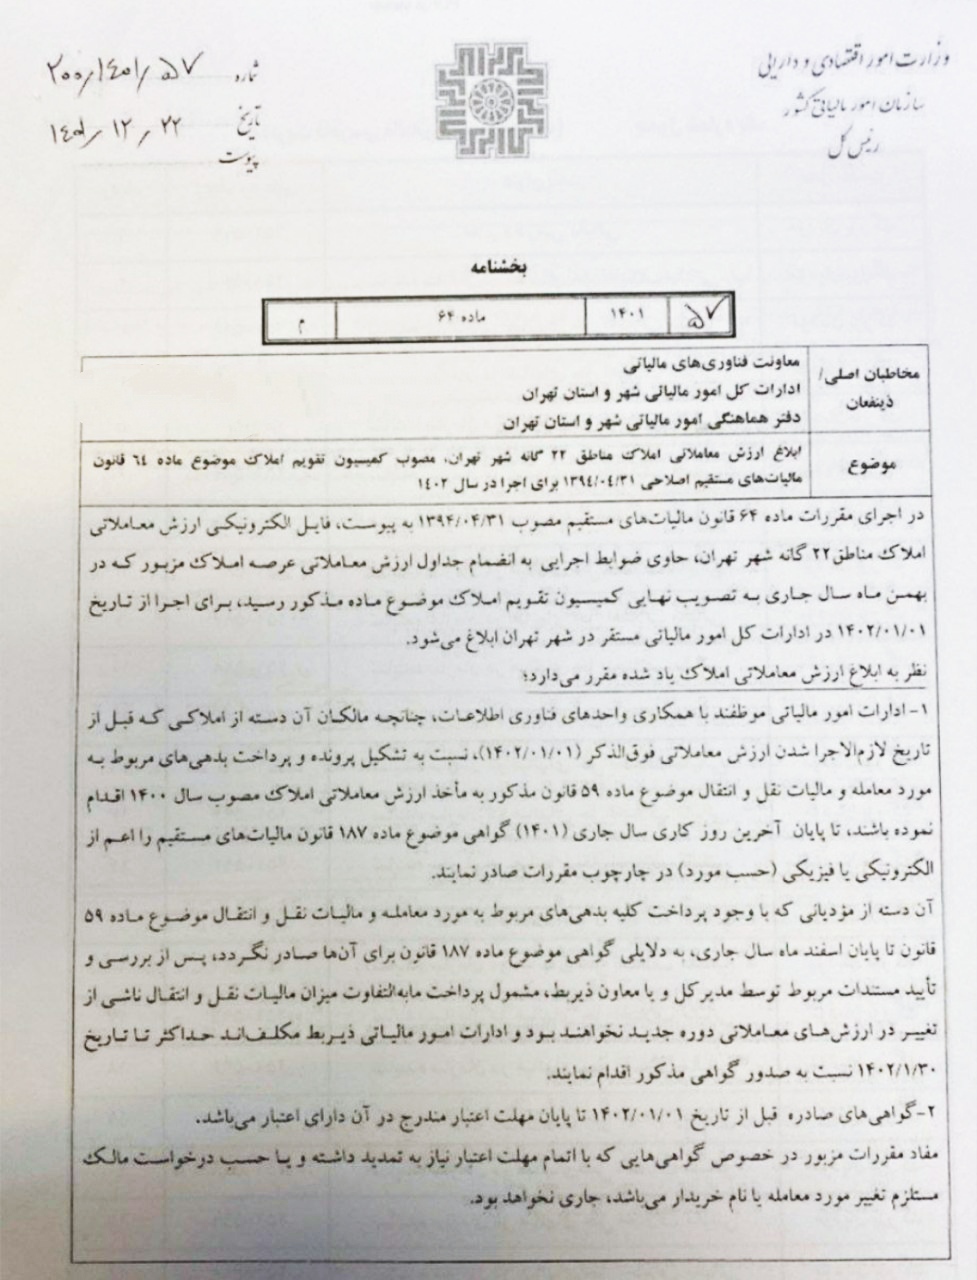 وزارت امور اقتصادی و دارایی
سازمان امور مالیاتی کشور
رئیس کل
شماره ۲۰۰/۱۴۰۱/۵۷
تاریخ ۱۴۰۱/۱۲/۲۲
پیوست
بخشنامه
۵۷ ۱۴۰۱ ماده ۶۴ م
مخاطبان اصلی/ ذینفعان
معاونت فناوری‌های مالیاتی
ادارات کل امور مالیاتی شهر و استان تهران
دفتر هماهنگی امور مالیاتی شهر و استان تهران
موضوع
ابلاغ ارزش معاملاتی املاک مناطق ۲۲ گانه شهر تهران، مصوب کمیسیون تقویم املاک موضوع ماده ٦٤ قانون
مالیات‌های مستقیم اصلاحی ۱۳۹٤/۰٤/۳۱ برای اجرا در سال ۱٤۰۲
در اجرای مقررات ماده ۶۴ قانون مالیات‌های مستقیم مصوب ۱۳۹۴/۰۴/۳۱ به پیوست، فایل الکترونیکی ارزش معاملاتی
املاک مناطق ۲۲ گانه شهر تهران، حاوی ضوابط اجرایی به انضمام جداول ارزش معاملاتی عرصه املاک مزبور که در
بهمن ماه سال جاری به تصویب نهایی کمیسیون تقویم املاک موضوع ماده مذکور رسید، برای اجرا از تاریخ
۱۴۰۲/۰۱/۰۱ در ادارات کل امور مالیاتی مستقر در شهر تهران ابلاغ می‌شود.
نظر به ابلاغ ارزش معاملاتی املاک یاد شده مقرر می‌دارد؛
۱- ادارات امور مالیاتی موظفند با همکاری واحدهای فناوری اطلاعات، چنانچه مالکان آن دسته از املاکی که قبل از
تاریخ لازم‌الاجرا شدن ارزش معاملاتی فوق‌الذکر (۱۴۰۲/۰۱/۰۱)، نسبت به تشکیل پرونده و پرداخت بدهی‌های مربوط به
مورد معامله و مالیات نقل و انتقال موضوع ماده ۵۹ قانون مذکور به مأخذ ارزش معاملاتی املاک مصوب سال ۱۴۰۰ اقدام
نموده باشند، تا پایان آخرین روز کاری سال جاری (۱۴۰۱) گواهی موضوع ماده ۱۸۷ قانون مالیات‌های مستقیم را اعم از
الکترونیکی یا فیزیکی (حسب مورد) در چارچوب مقررات صادر نمایند.
آن دسته از مؤدیانی که با وجود پرداخت کلیه بدهی‌های مربوط به مورد معامله و مالیات نقل و انتقال موضوع ماده ۵۹
قانون تا پایان اسفند ماه سال جاری، به دلایلی گواهی موضوع ماده ۱۸۷ قانون برای آن‌ها صادر نگردد، پس از بررسی و
تأیید مستندات مربوط توسط مدیرکل و یا معاون ذیربط، مشمول پرداخت مابه‌التفاوت میزان مالیات نقل و انتقال ناشی از
تغییر در ارزش‌های معاملاتی دوره جدید نخواهند بود و ادارات امور مالیاتی ذیربط مکلف‌اند حداکثر تا تاریخ
۱۴۰۲/۱/۳۰ نسبت به صدور گواهی مذکور اقدام نمایند.
۲-گواهی‌های صادره قبل از تاریخ ۱۴۰۲/۰۱/۰۱ تا پایان مهلت اعتبار مندرج در آن دارای اعتبار می‌باشد.
مفاد مقررات مزبور در خصوص گواهی‌هایی که با اتمام مهلت اعتبار نیاز به تمدید داشته و یا حسب درخواست مالک
مستلزم تغییر مورد معامله یا نام خریدار می‌باشد، جاری نخواهد بود.